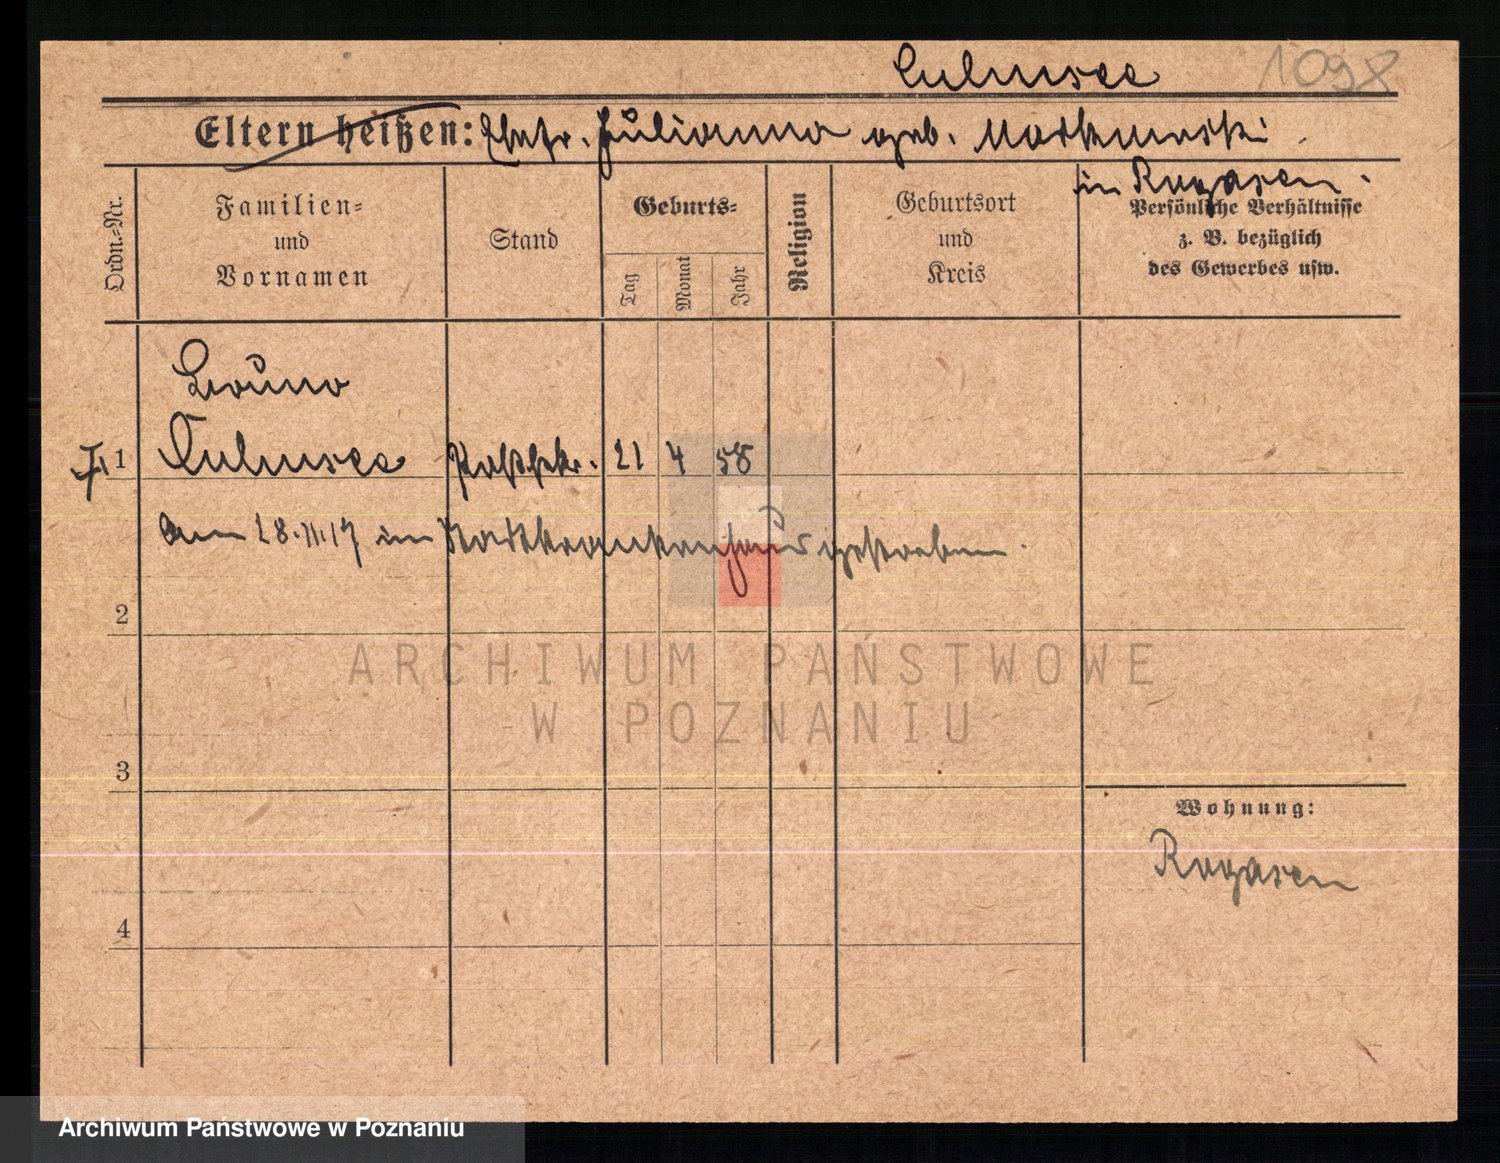 Culmsee
1098
Eltern heißen: Ehefr. Julianna geb.
in Rogasen.
Ordn.-Nr.
Familien-
und
Vornamen
Stand
Geburts-
Tag
Monat
Jahr
Religion
Geburtsort
und
Kreis
Persönliche Verhältnisse
z. B. bezüglich
des Gewerbes usw.
Bruno
1 Culmsee Postsekr. 21 4 58
Am 28.11.17 im Stadtkrankenhaus gestorben.
2
3
4
Wohnung:
Rogasen
ARCHIWUM PAŃSTWOWE
W POZNANIU
Archiwum Państwowe w Poznaniu